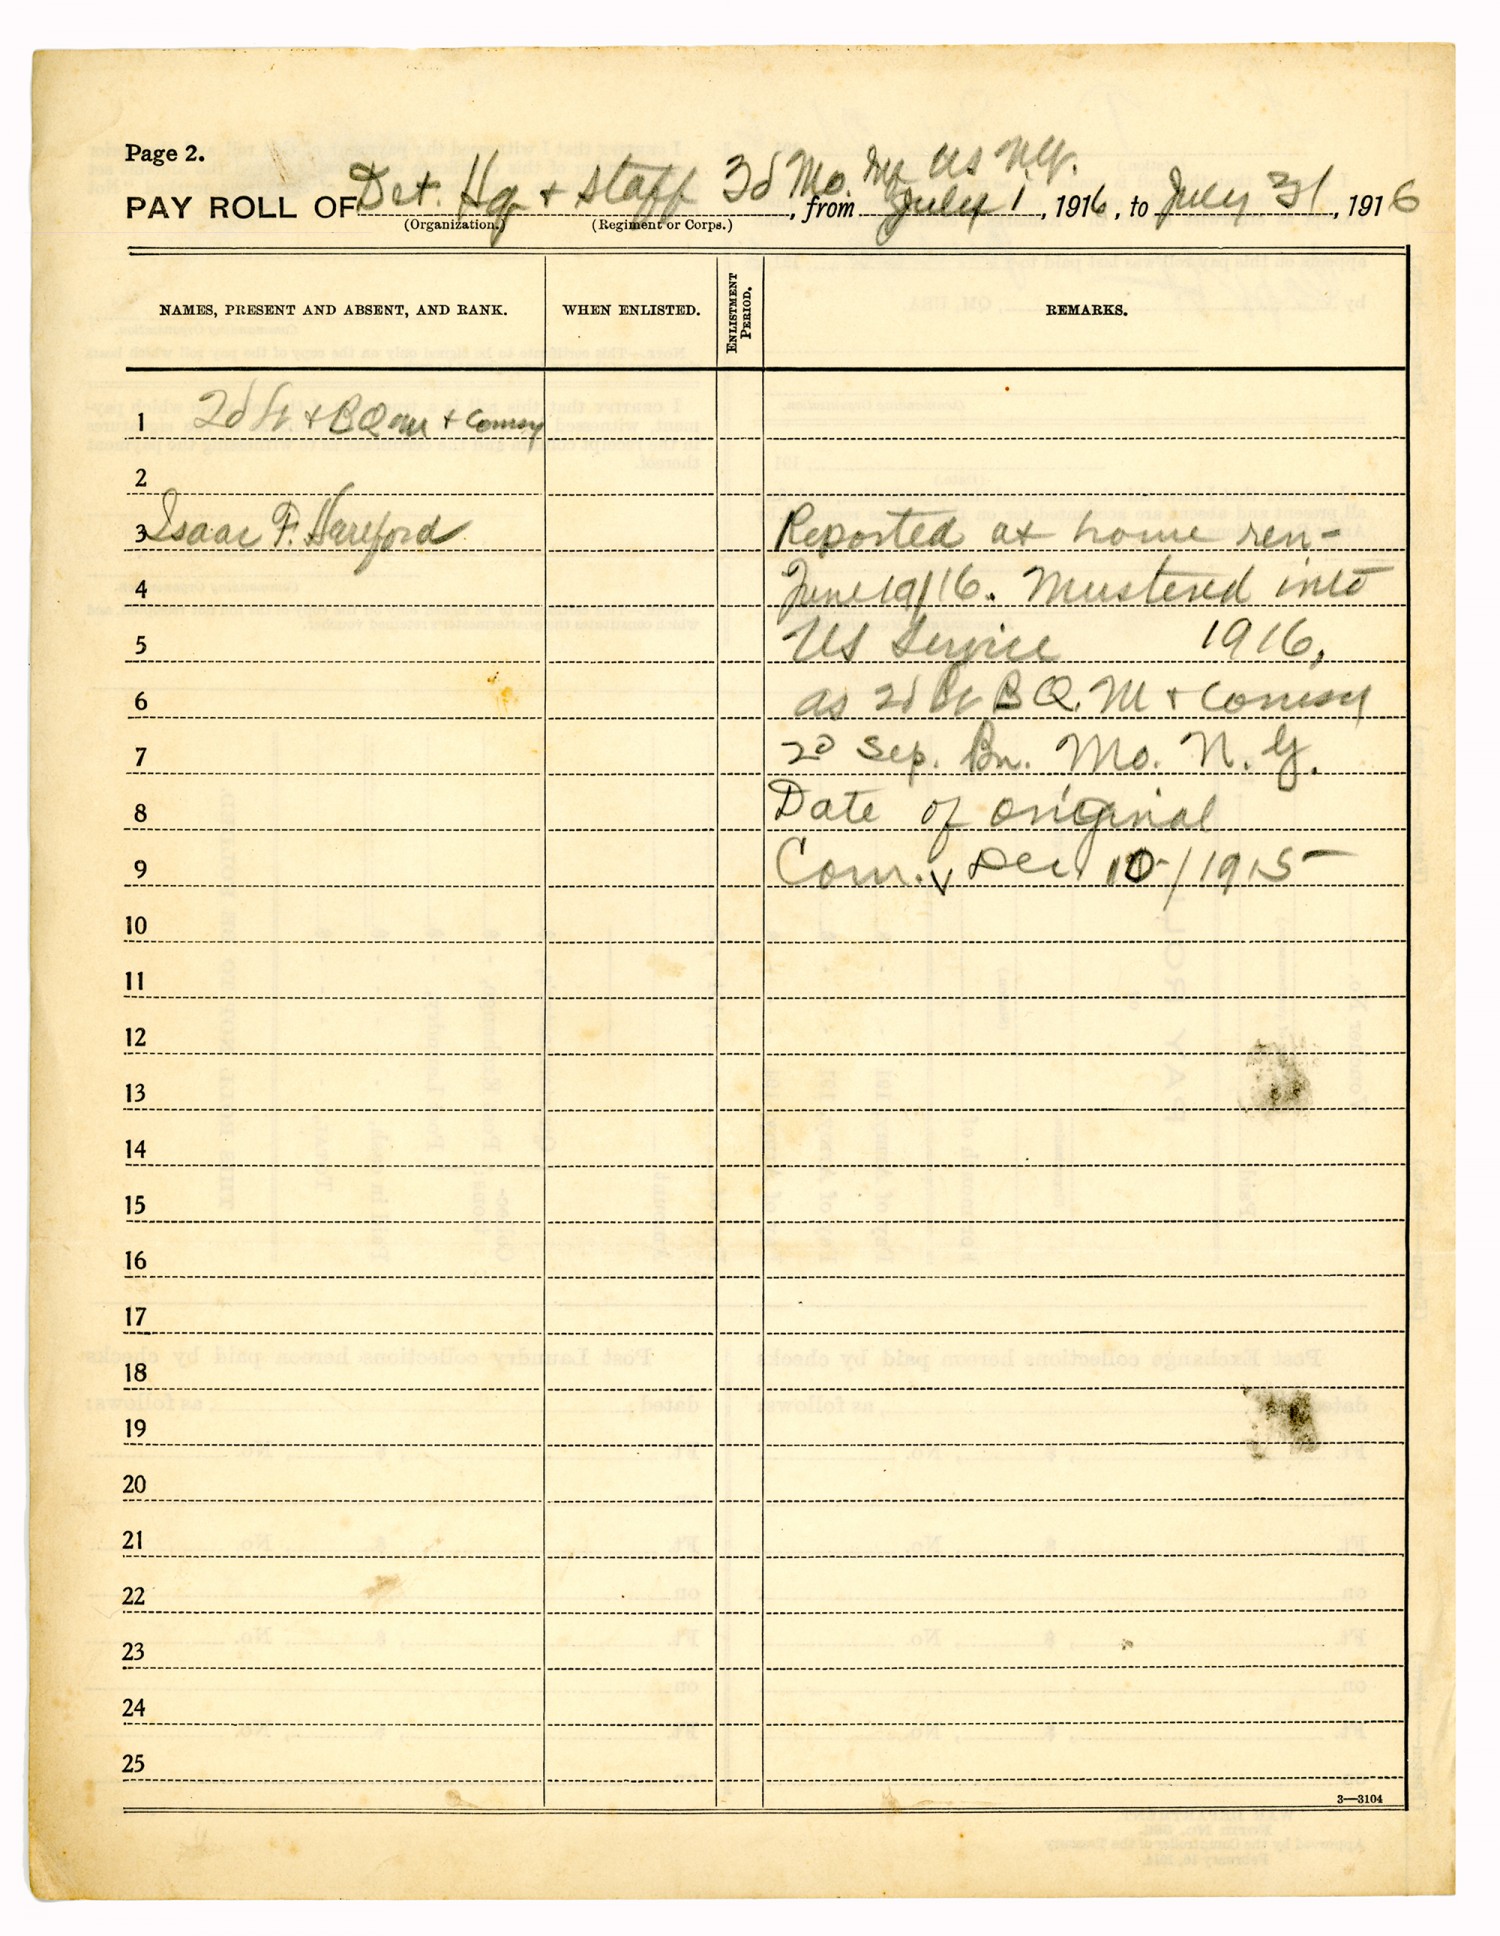 Page 2.
PAY ROLL OF Det. Hq + Staff 3d Mo. Inf US N.G., from July 1, 1916, to July 31, 1916
(Organization.) (Regiment or Corps.)
NAMES, PRESENT AND ABSENT, AND RANK. WHEN ENLISTED. ENLISTMENT PERIOD. REMARKS.
1 2d Lt + B Q M + Comsy
2
3 Isaac F. Hareford Reported at home ren-
4 June 19/16. Mustered into
5 US Service 1916,
6 as 2d Lt B Q. M + Comsy
7 2d Sep. Bn. Mo. N. G.
8 Date of original
9 Com. Dec 10/1915
10
11
12
13
14
15
16
17
18
19
20
21
22
23
24
25
3—3104